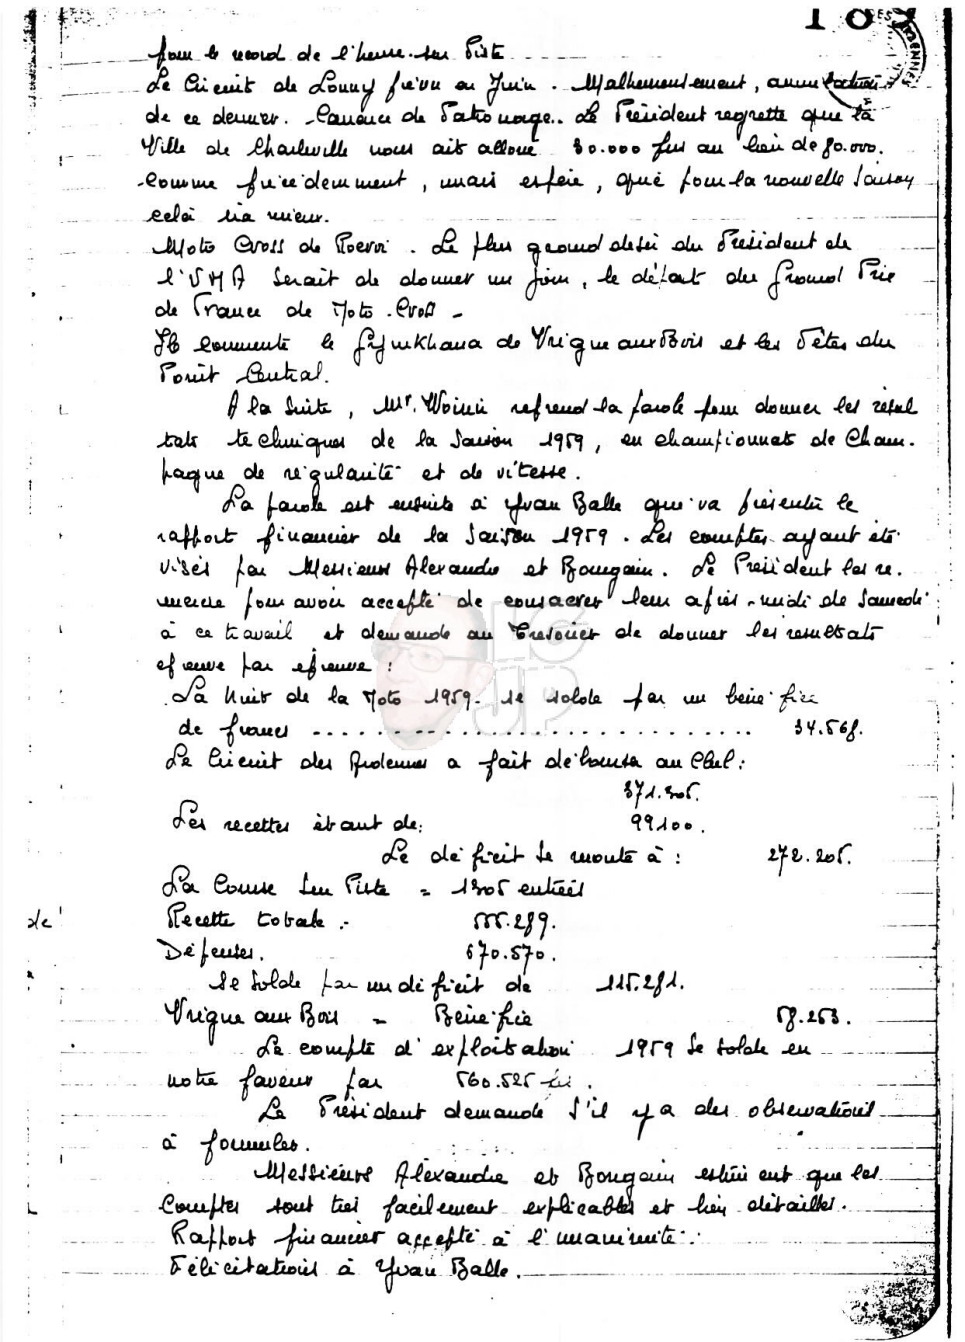 pour le record de l'heure sur Piste
Le Circuit de Lonny prévu en Juin. Malheureusement, annulation
de ce dernier. Carence de Patronage.. Le Président regrette que la
Ville de Charleville nous ait alloué 30.000 frs au lieu de 80.000.
comme précédemment, mais espère, que pour la nouvelle saison
celà ira mieux.
Moto Cross de Rocroi. Le plus grand désir du Président de
l'UMA serait de donner un jour, le départ du Grand Prix
de France de Moto-Cross -
Il commente le Gymkhana de Vrigne aux Bois et les Fêtes du
Point Central.
A la suite, Mr. Woirin reprend la parole pour donner les résul
tats techniques de la saison 1959, en championnats de Cham-
pagne de régularité et de vitesse.
La parole est ensuite à Yvan Balle qui va présenter le
rapport financier de la saison 1959. Les comptes ayant été
visés par Messieurs Alexandre et Bougain. Le Président les re-
mercie pour avoir accepté de consacrer leur après-midi de Samedi
à ce travail et demande au Trésorier de donner les résultats
épreuve par épreuve :
La Nuit de la Moto 1959 - se solde par un bénéfice
de francs .............................. 34.568.
Le Circuit des Ardennes a fait débourser au Club :
371.305.
Les recettes étant de : 99100.
Le déficit se monte à : 272.205.
La Course sur Piste = 1305 entrées
de Recette totale :- 555.289.
Dépenses. 670.570.
Se solde par un déficit de 115.281.
Vrigne aux Bois = Bénéfice 58.253.
Le compte d'exploitation 1959 se solde en
notre faveur par 560.525 frs.
Le Président demande s'il y a des observations
à formuler.
Messieurs Alexandre et Bougain estiment que les
Comptes sont très facilement explicables et bien détaillés.
Rapport financier accepté à l'unanimité.
Félicitations à Yvan Balle.
LG
JP